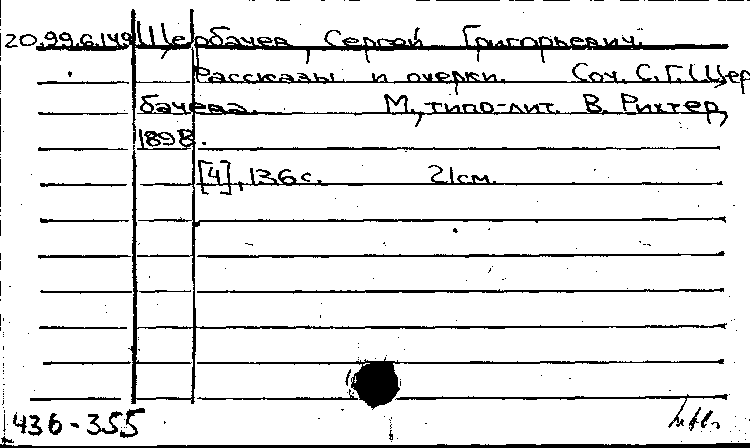 20.99.6.149 Щербачев, Сергей Григорьевич.
Рассказы и очерки. Соч. С.Г. Щер
бачева. М., типо-лит. В. Рихтер,
1898.
[4], 136 с. 21 см.
436-355